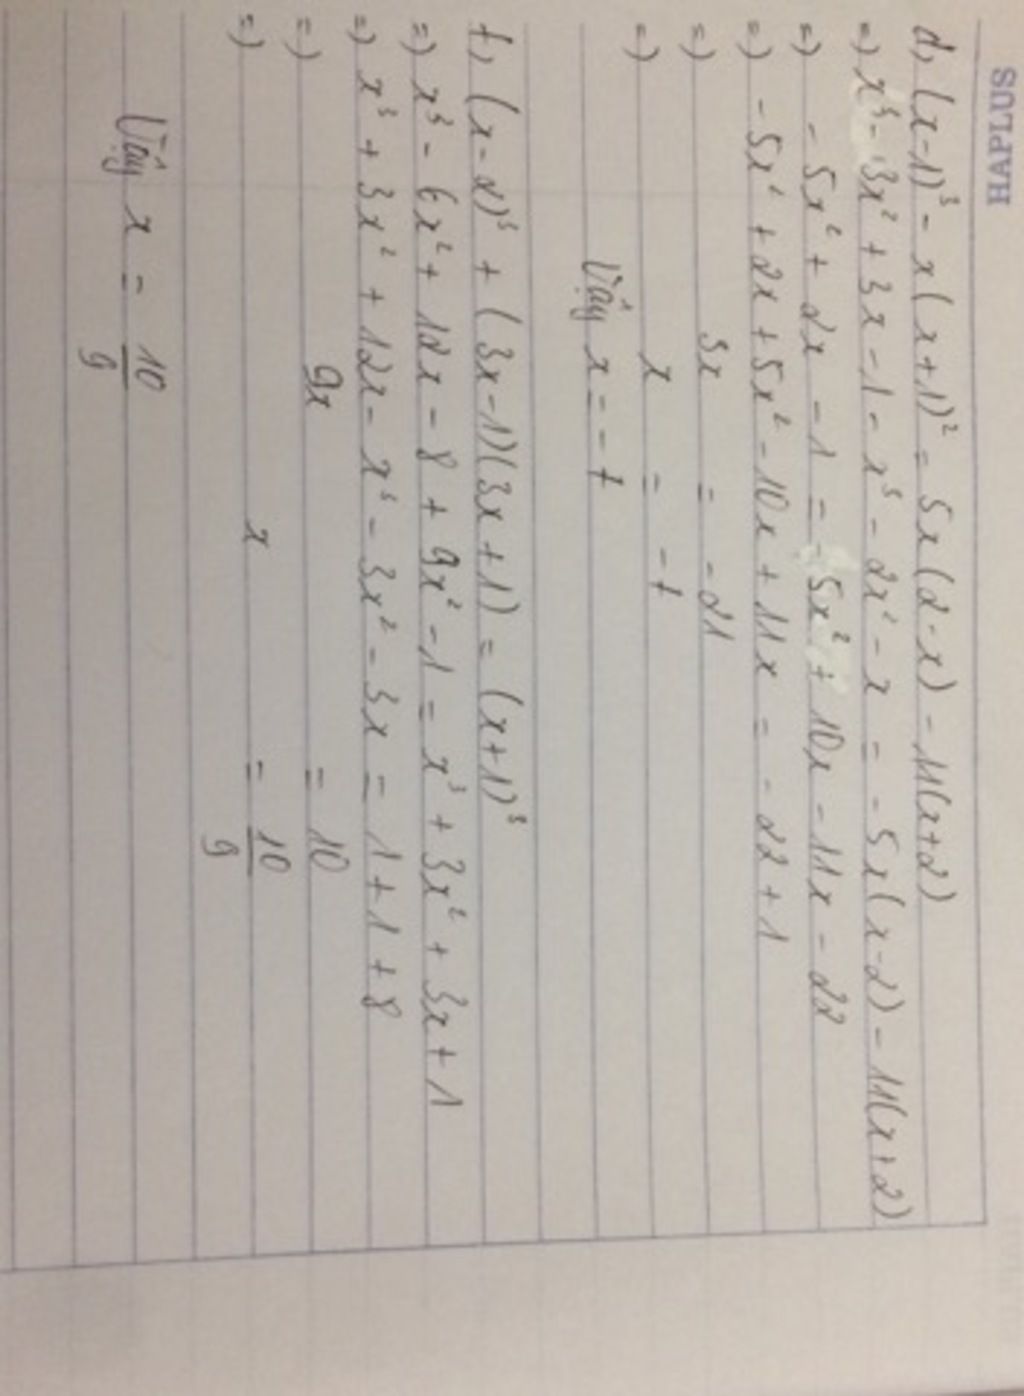 HAPLUS
d, (x-1)³ - x(x+1)² = 5x(2-x) - 11(x+2)
=) x³ - 3x² + 3x - 1 - x³ - 2x² - x = -5x(x-2) - 11(x+2)
=) -5x² + 2x - 1 = -5x² + 10x - 11x - 22
=) -5x² + 2x + 5x² - 10x + 11x = -22 + 1
=) 3x = -21
=) x = -7
Vậy x = -7
f, (x-2)³ + (3x-1)(3x+1) = (x+1)³
=) x³ - 6x² + 12x - 8 + 9x² - 1 = x³ + 3x² + 3x + 1
=) x³ + 3x² + 12x - x³ - 3x² - 3x = 1 + 1 + 8
=) 9x = 10
=) x = 10/9
Vậy x = 10/9